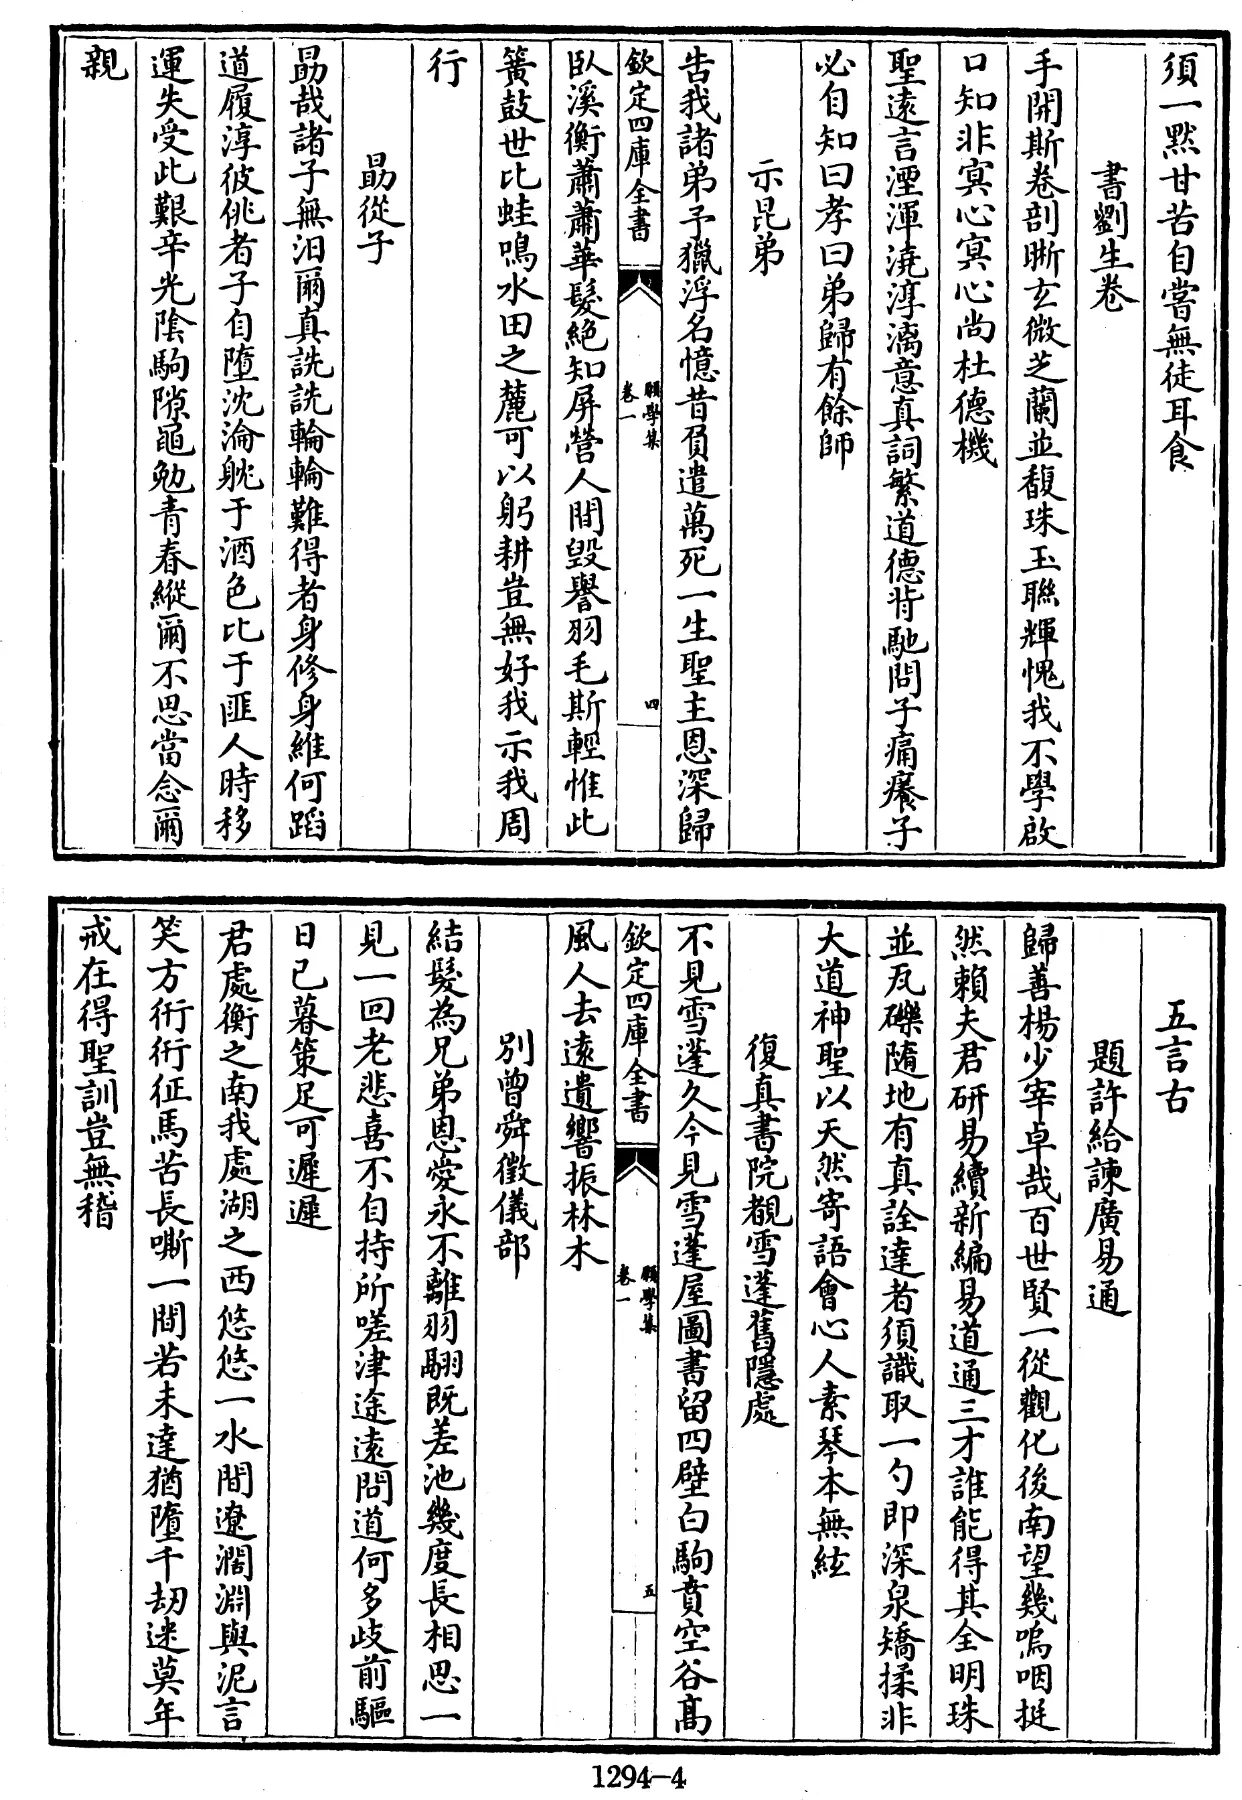 須一㸃甘苦自嘗無徒耳食
書劉生卷
手開斯卷剖晣玄微芝蘭並馥珠玉聯輝愧我不學啟
口知非㝠心㝠心尚杜德機
聖逺言湮渾澆淳漓意真詞繁道德背馳問子痛癢子
必自知曰孝曰弟歸有餘師
示昆弟
告我諸弟予獵浮名憶昔負遣萬死一生聖主恩深歸
欽定四庫全書
願學集
卷一
四
臥溪衡蕭蕭華髮絶知屏營人間毀譽羽毛斯輕惟此
簧鼓世比蛙鳴水田之麓可以躬耕豈無好我示我周
行
勗從子
勗哉諸子無汨爾真詵詵輪輪難得者身修身維何蹈
道履淳彼佻者子自墮沈淪躭于酒色比于匪人時移
運失受此艱辛光陰駒隙黽勉青春縱爾不思當念爾
親
五言古
題許給諫廣易通
歸善楊少宰卓哉百世賢一從觀化後南望幾嗚咽挺
然賴夫君研易續新編易道通三才誰能得其全明珠
並瓦礫隨地有真詮達者須識取一勺即深泉矯揉非
大道神聖以天然寄語會心人素琴本無絃
復真書院覩雪蓬舊隱處
不見雪蓬久今見雪蓬屋圖書留四壁白駒賁空谷髙
欽定四庫全書
願學集
卷一
五
風人去逺遺響振林木
別曾舜徵儀部
結髮為兄弟恩愛永不離羽翮既差池幾度長相思一
見一回老悲喜不自持所嗟津途逺問道何多歧前驅
日已暮策足可遲遲
君處衡之南我處湖之西悠悠一水間遼濶淵與泥言
笑方衎衎征馬苦長嘶一間若未達猶墮千刼迷莫年
戒在得聖訓豈無稽
1294-4